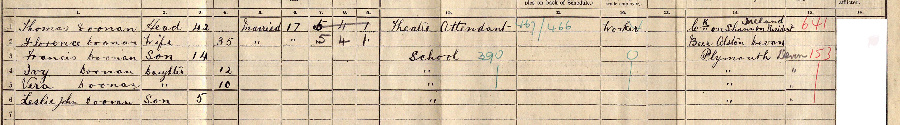 1 Thomas Doonan Head 42 Married 17 5 4 1 Theatre Attendant 466 Worker Ireland 641
2 Florence Doonan Wife 35 " " 5 4 1 Beer Alston Devon
3 Francis Doonan Son 14 School 290 Plymouth Devon 153
4 Ivy Doonan Daughter 12 "
5 Vera Doonan " 10 " "
6 Leslie John Doonan Son 5 " "
7